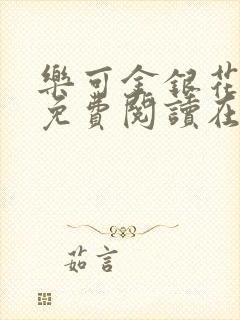 樂可金銀花
免費閱讀在
茹言